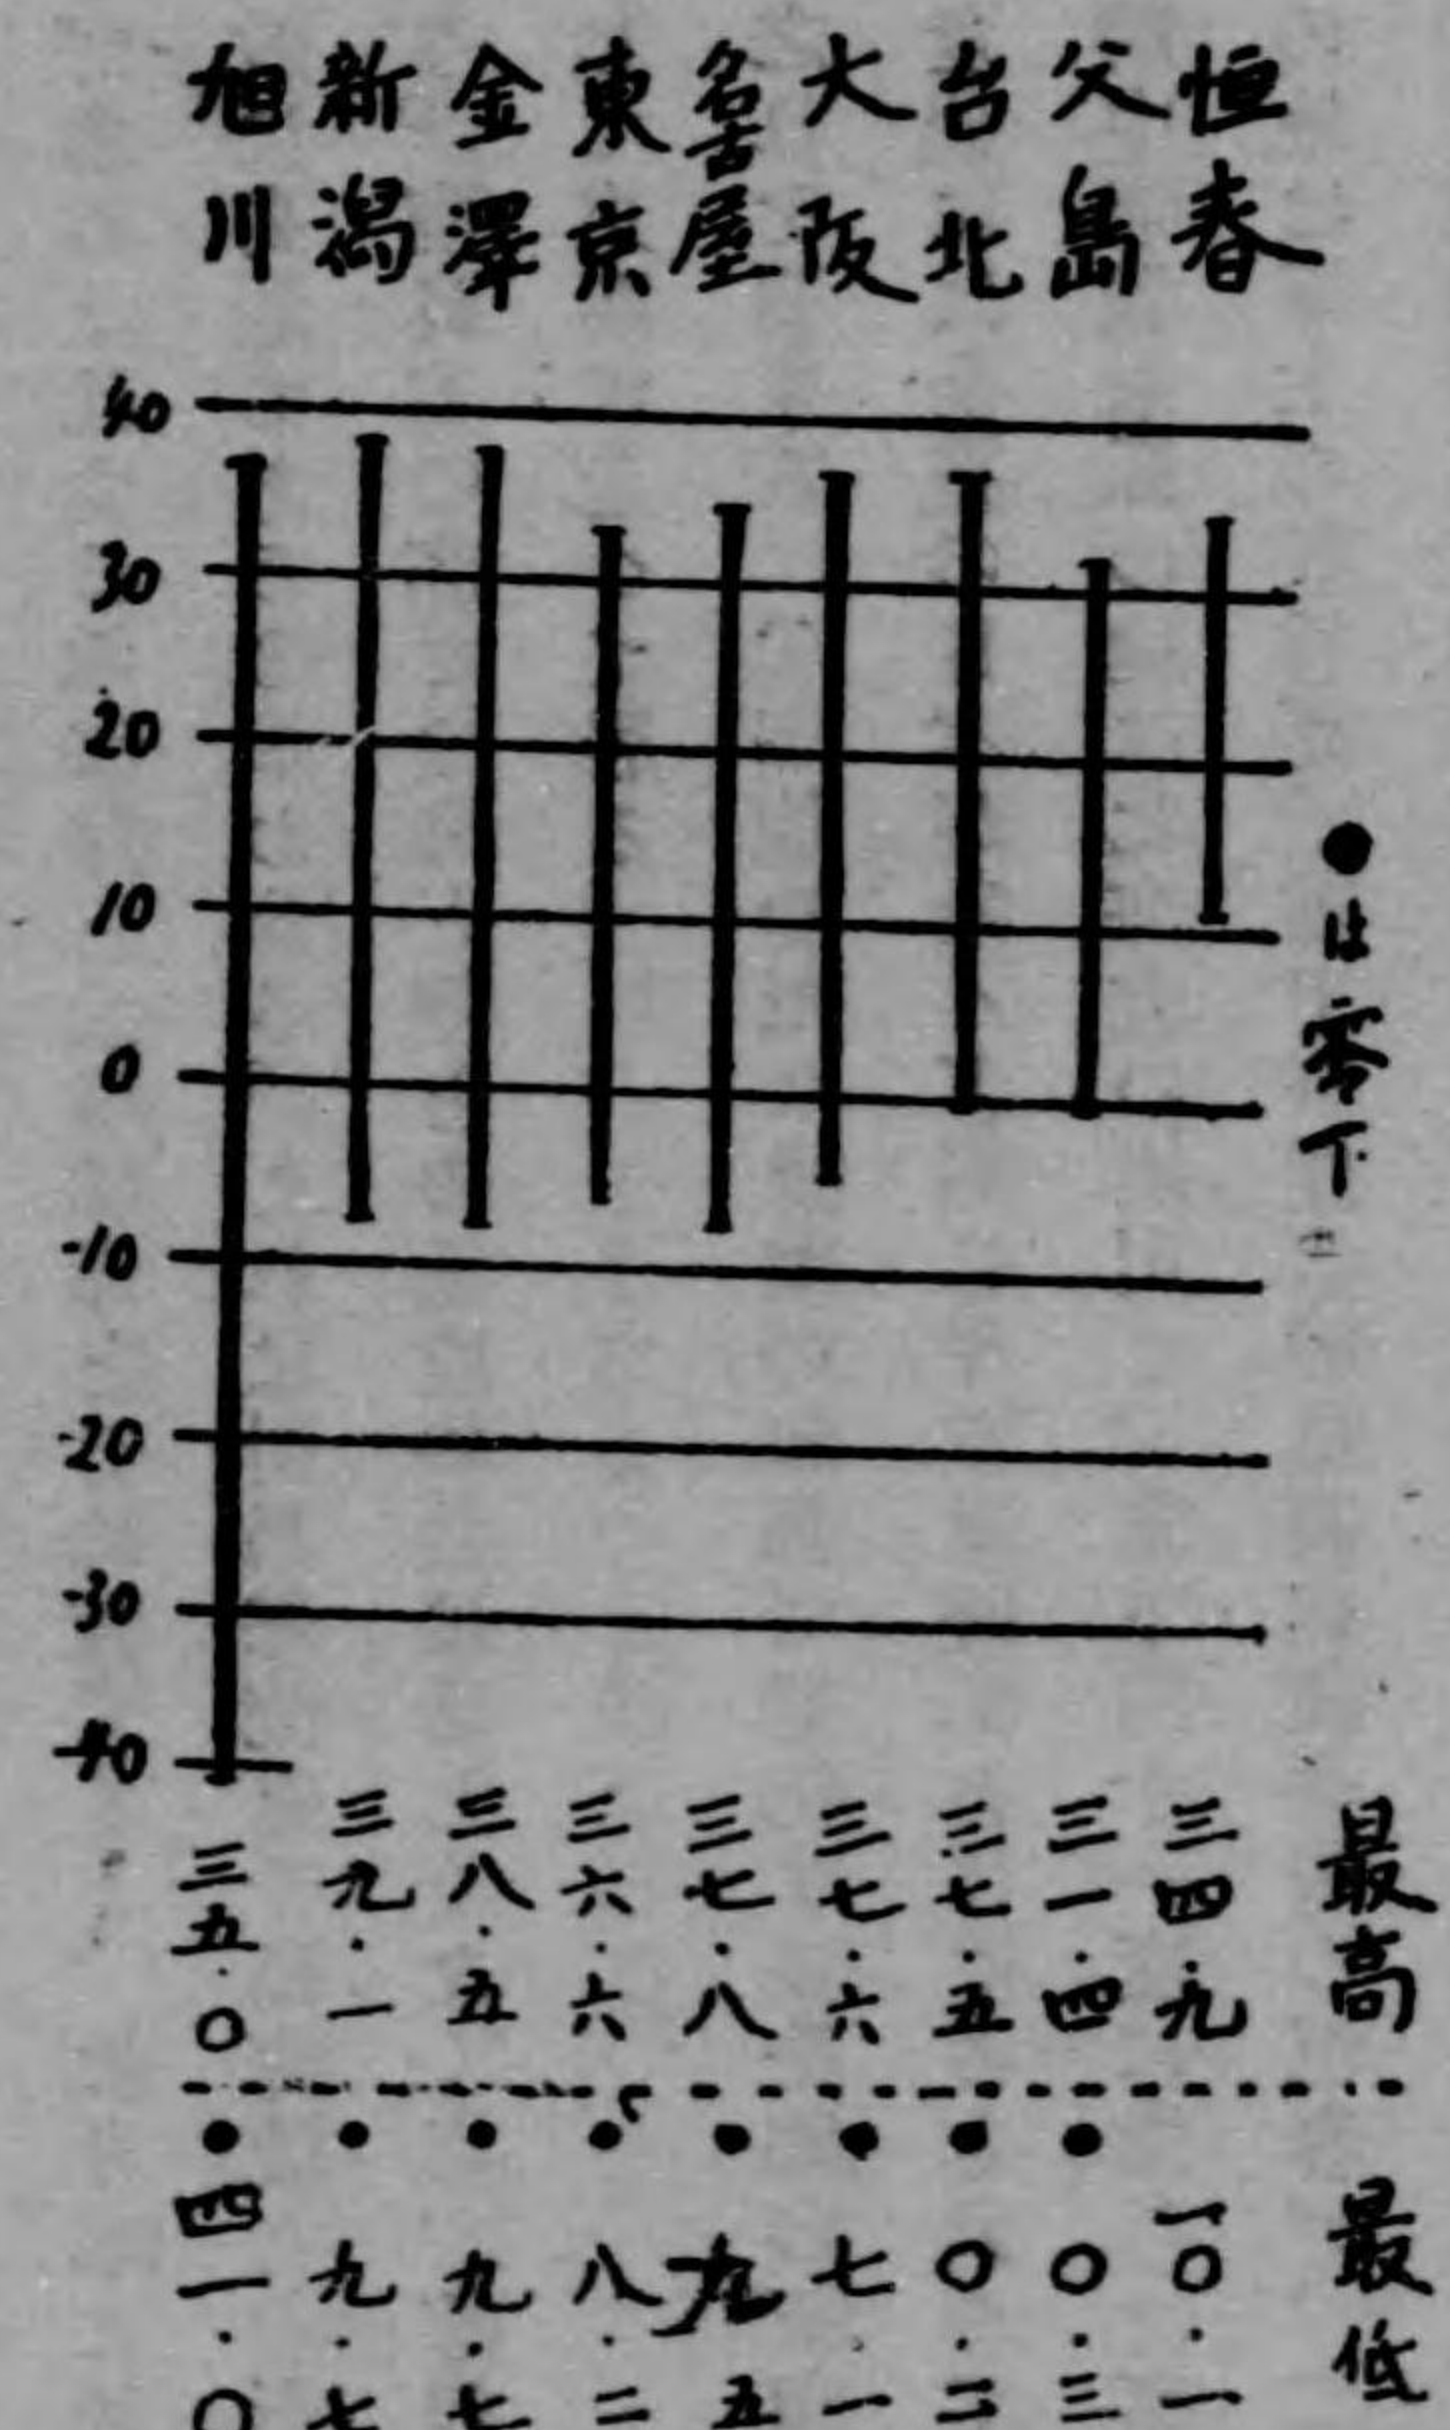 恒春
父島
台北
大阪
名古屋
東京
金澤
新潟
旭川
40
30
20
10
0
-10
-20
-30
-40
●は零下
最高
三四.九
三一.四
三七.五
三七.六
三七.八
三六.六
三八.五
三九.一
三五.〇
最低
一〇.一
●〇.三
●〇.二
●七.一
●九五
●八.二
●九.七
●九.七
●四一.〇